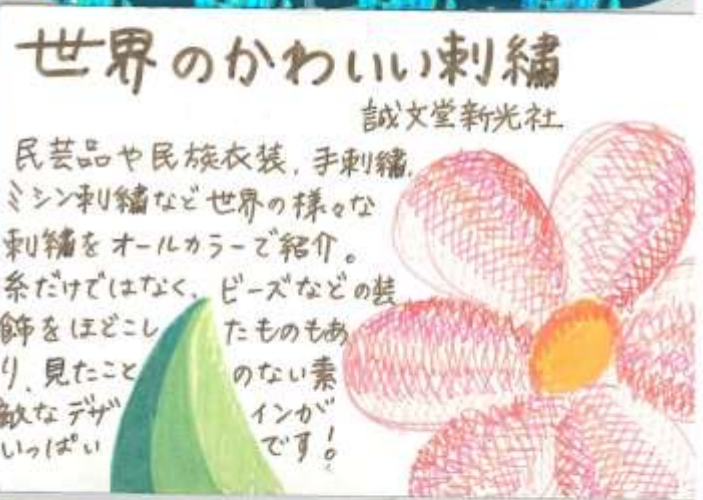 世界のかわいい刺繍
誠文堂新光社
民芸品や民族衣装、手刺繍、
ミシン刺繍など世界の様々な
刺繍をオールカラーで紹介。
糸だけではなく、ビーズなどの装
飾をほどこしたものもあ
り、見たことのない素
敵なデザインが
いっぱいです!